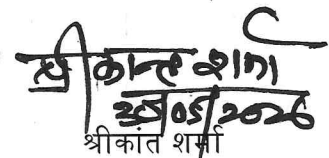 श्रीकान्त शर्मा
28/05/2026
श्रीकांत शर्मा